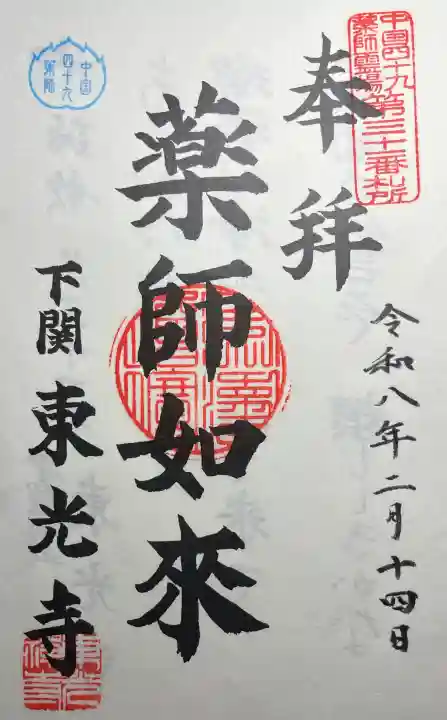 中国四十九
薬師霊場第三十一番札所
奉拝
令和八年二月十四日
薬師如来
中国
四十九
薬師
下関 東光寺